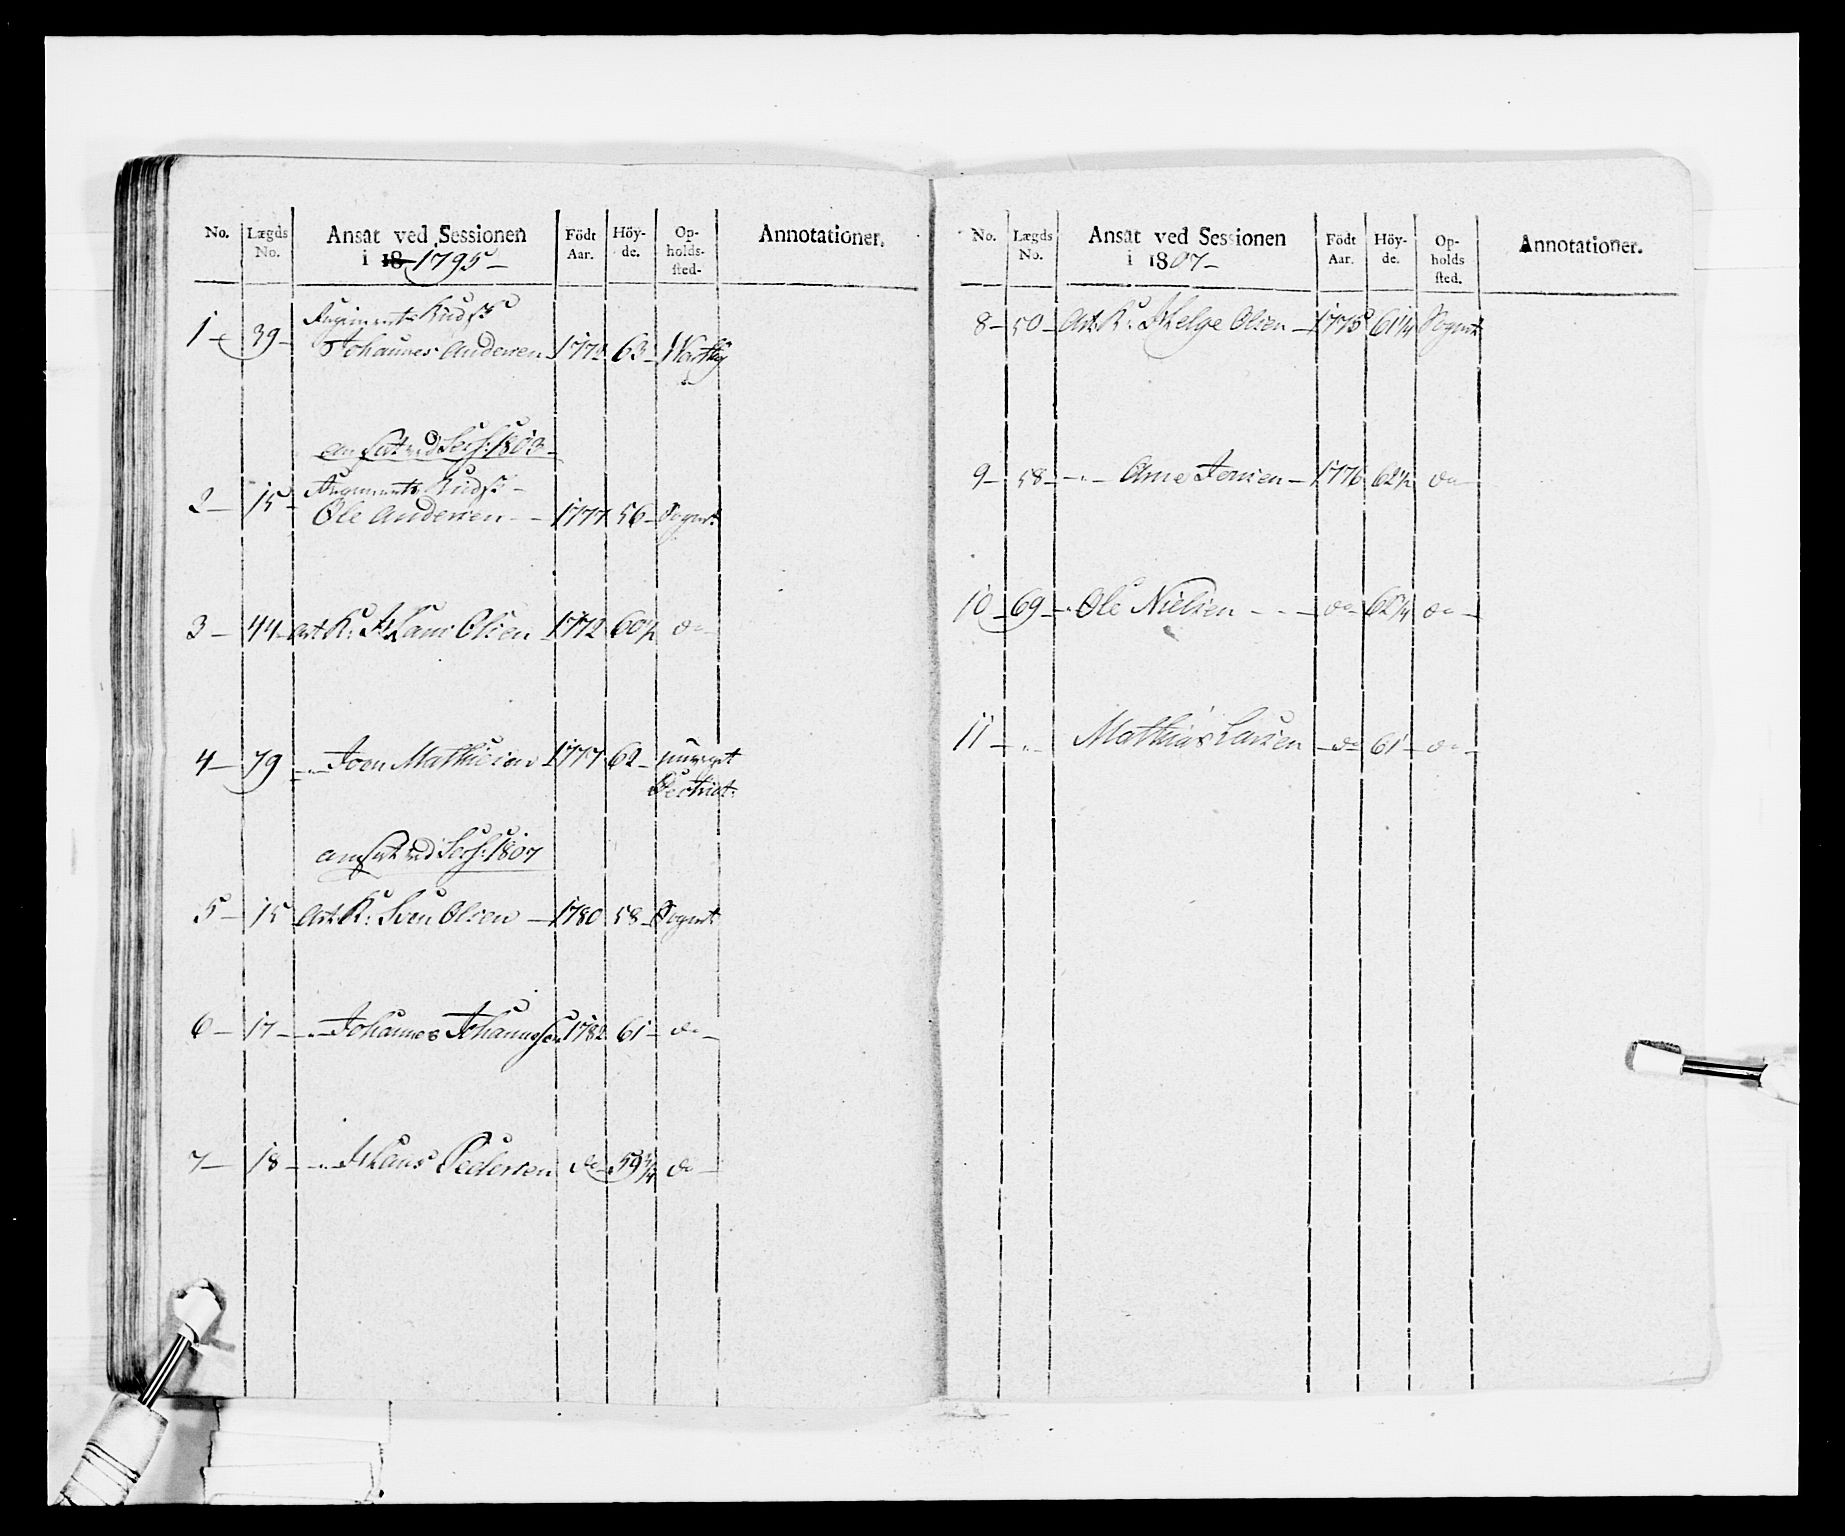 No. Lægds No. Ansat ved Sessionen i 1795 Födt Aar. Höyde. Opholdssted. Annotationer.
Regiments Kudsk
1 39 Johannes Andersen 177 63
ansat ved Sess: 1803
Regiments Kudsk
2 15 Ole Andersen 1777 56 Sognet
3 44 Art. K: Hans Olsen 1772 60½ do
4 79 " Joen Mathiesen 1777 62 uvist
District.
ansat ved Sess: 1807
5 15 Art. K: Sven Olsen 1780 58 Sognet
6 17 " Johannes Johannessen 1782 61 do
7 18 " Hans Pedersen do 59¾ do
No. Lægds No. Ansat ved Sessionen i 1807 Födt Aar. Höyde. Opholds sted. Annotationer.
8 50 Art. K: Helge Olsen 1775 61¼ Sognet
9 58 " Arne Jensen 1776 62½ do
10 69 " Ole Nielsen do 62¼ do
11 " Mathias Larsen do 61 do